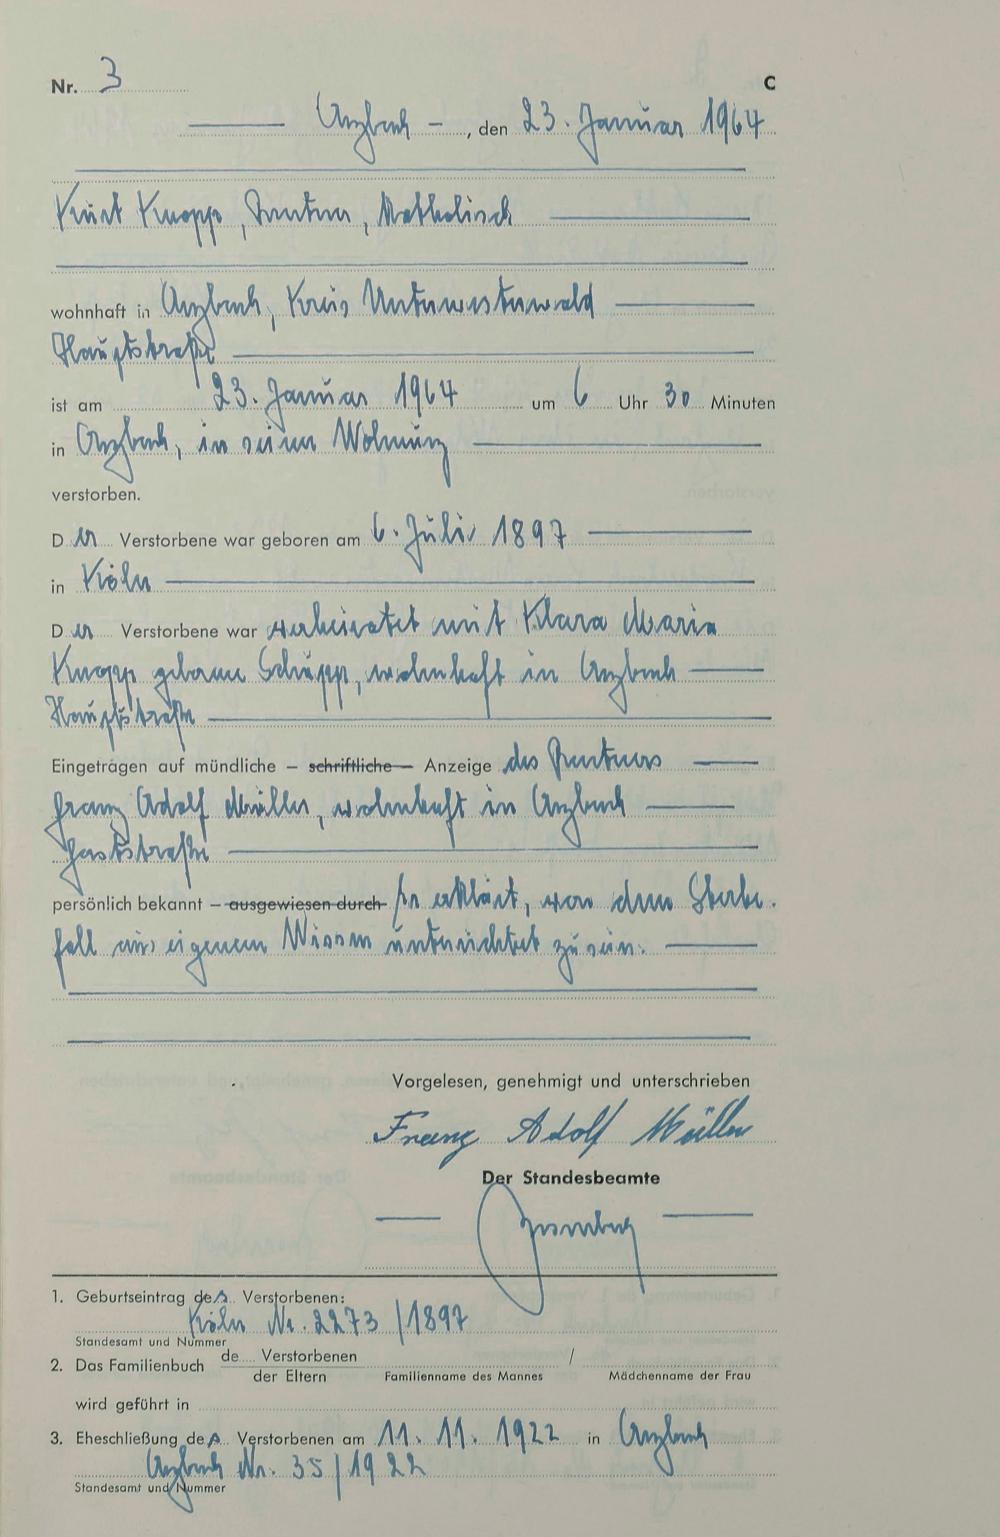 Nr. 3 C
Arzbach –, den 23. Januar 1964
Kurt Knopp, Rentner, Katholisch
wohnhaft in Arzbach, Kreis Unterwesterwald
Hauptstraße
ist am 23. Januar 1964 um 6 Uhr 30 Minuten
in Arzbach, in seiner Wohnung
verstorben.
Der Verstorbene war geboren am 6. Juli 1897
in Köln
Der Verstorbene war verheiratet mit Klara Maria
Knopp geborene Schupp, wohnhaft in Arzbach
Hauptstraße
Eingetragen auf mündliche – schriftliche – Anzeige des Rentners
Franz Adolf Müller, wohnhaft in Arzbach
persönlich bekannt – ausgewiesen durch Er erklärt, von dem Sterbe-
fall aus eigenem Wissen unterrichtet zu sein.
Vorgelesen, genehmigt und unterschrieben
Franz Adolf Müller
Der Standesbeamte
1. Geburtseintrag des Verstorbenen:
Köln Nr. 2273/1897
Standesamt und Nummer
2. Das Familienbuch de Verstorbenen /
der Eltern Familienname des Mannes Mädchenname der Frau
wird geführt in
3. Eheschließung des Verstorbenen am 11. 11. 1922 in Arzbach
Arzbach Nr. 35/1922
Standesamt und Nummer